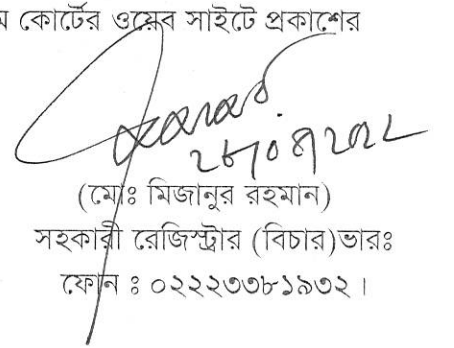 কোর্টের ওয়েব সাইটে প্রকাশের
(মোঃ মিজানুর রহমান)
সহকারী রেজিস্ট্রার (বিচার)ভারঃ
ফোন ঃ ০২২২৩৩৮১৯৩২।